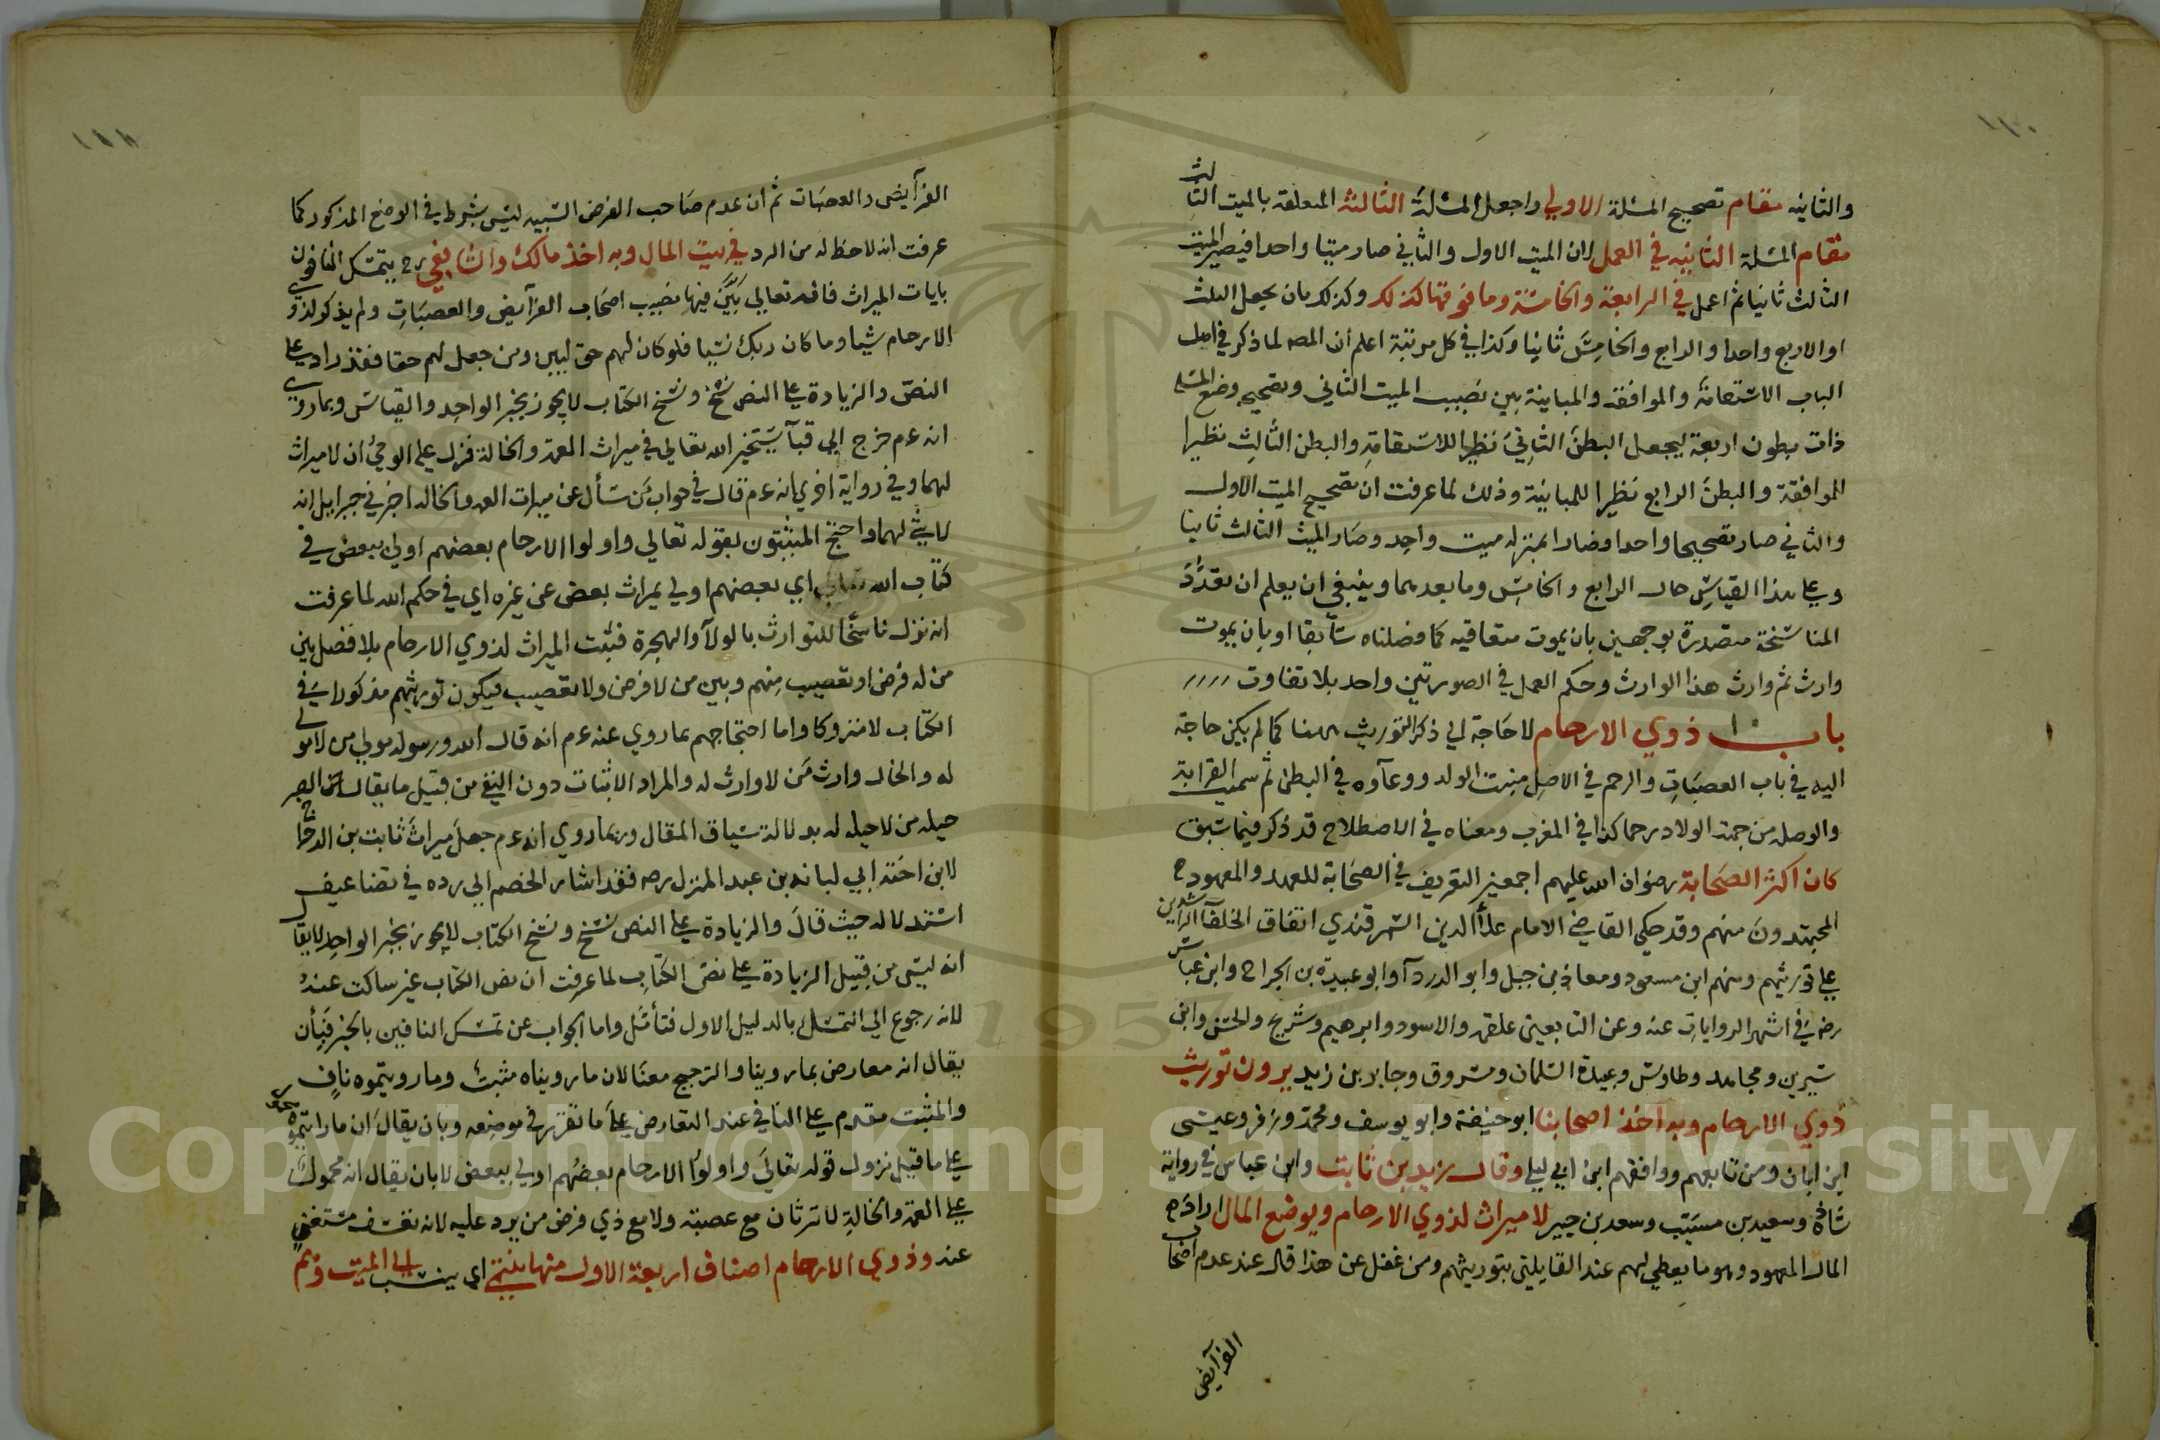 والثانيه مقام تصحيح المسئلة الاولي واجعل المسئلة الثالثة المتعلقة بالميت الثالث
مقام المسئلة الثانيه في العمل لان الميت الاول والثاني صار ميتا واحدا فيصير الميت
الثالث ثانيا ثم اعمل في الرابعة والخامسة وما فوقها كذلك وكذلك بان يجعل الثلث
او الاربع واحدا والرابع والخامس ثانيا وكذا في كل مرتبة اعلم ان المصه لما ذكر في اصل
الباب الاستقامة والموافقه والمباينة بين نصيب الميت الثاني وتصحيحه وضع المسئلة
ذات بطون اربعة ليجعل البطن الثاني نظيرا للاستقامة والبطن الثالث نظيرا
للموافقة والبطن الرابع نظيرا للمباينة وذلك لما عرفت ان تصحيح الميت الاول
والثاني صار تصحيحا واحدا وصارا بمنزلة ميت واحد وصار الميت الثالث ثانيا
وعلى هذا القياس حال الرابع والخامس وما بعدهما وينبغي ان يعلم ان تعدد
المناسخة متصورة بوجهين بان يموت متعاقبه كما فصلناه سابقا او بان يموت
وارث ثم وارث هذا الوارث وحكم العمل في الصورتين واحد بلا تفاوت
باب ذوي الارحام لا حاجة الي ذكر التوريث ههنا كما لم يكن حاجة
اليه في باب العصبات والرحم في الاصل منبت الولد ووعآوه في البطن ثم سميت القرابة
والوصله من جهة الولاد رحما كذا في المغرب ومعناه في الاصطلاح قد ذكر فيما سبق
كان اكثر الصحابة رضوان الله عليهم اجمعين التعريف في الصحابة للعهد والمعهود ح
المجتهدون منهم وقد حكي القاضي الامام علأ الدين السمرقندي اتفاق الخلفآ الراشدين
على توريثهم ومنهم ابن مسعود ومعاذ بن جبل وابو الدردآ وابو عبيدة بن الجراح وابن عباس
رضه في اشهر الروايات عنه وعن التابعين علقمه والاسود وابرهيم وشريح والحسن وابن
سيرين ومجاهد وطاوس وعبيدة السلمان ومسروق وجابر بن زيد يرون توريث
ذوي الارحام وبه اخذ اصحابنا ابو حنيفة وابو يوسف ومحمد وزفر وعيسى
ابن ابان ومن تابعهم ووافقهم ابن ابي ليلي وقال زيد بن ثابت وابن عباس في رواية
شاذة وسعيد بن مسيب وسعد بن جبير لا ميراث لذوي الارحام ويوضع المال اراد به
المال المعهود وهو ما يعطي لهم عند القايلين بتوريثهم ومن غفل عن هذا قال عند عدم اصحاب
الفرآيض
الفرآيض والعصبات ثم ان عدم صاحب الفرض النسبيه ليس بشرط في الوضع المذكور كما
عرفت انه لا حظ له من الرد في بيت المال وبه اخذ مالك والشافعي رح يتمسك النافون
بايات الميراث فانه تعالي بين فيها نصيب اصحاب الفرآيض والعصبات ولم يذكر لذوي
الارحام شيا وما كان ربك نسيا فلو كان لهم حق لبين ومن جعل لهم حقا فقد زاد على
النص والزيادة على النص نسخ ونسخ الكتاب لا يجوز بخبر الواحد والقياس وبما روي
انه عم خرج الي قبآ يستخير الله تعالي في ميراث العمة والخالة فنزل على الوحي ان لا ميراث
لهما وفي رواية اخري انه عم قال في جواب من سأل عن ميراث العمه والخاله اخبرني جبرايل انه
لا شيء لهما واحتج المثبتون بقوله تعالي واولوا الارحام بعضهم اولي ببعض في
كتاب الله تعالي اي بعضهم اولي بميراث بعض عن غيره اي في حكم الله لما عرفت
انه نزل ناسخا للتوارث بالولآ والهجرة فثبت الميراث لذوي الارحام بلا فصل بين
من له فرض او تعصيب منهم وبين من لا فرض ولا تعصيب فيكون توريثهم مذكورا في
الكتاب لا متروكا واما احتجاجهم بما روي عنه عم انه قال الله ورسوله مولي من لا مولي
له والخال وارث من لا وارث له والمراد الاثبات دون النفي من قبيل ما يقال الصبر
حيله من لا حيله له بدلالة سياق المقال وبما روي انه عم جعل ميراث ثابت بن الدحداح
لابن اخته ابي لبابه بن عبد المنزل رضه فقد اشار الخصم الي رده في تضاعيف
استدلاله حيث قال والزيادة على النص نسخ ونسخ الكتاب لا يجوز بخبر الواحد لا يقال
انه ليس من قبيل الزيادة على نص الكتاب لما عرفت ان نص الكتاب غير ساكت عنه
لانه رجوع الي التمسك بالدليل الاول فتأمل واما الجواب عن تمسك النافين بالخبر فبأن
يقال انه معارض بما روينا والترجيح معنا لان ما رويناه مثبت وما رويتموه ناف
والمثبت مقدم على النافي عند التعارض على ما تقرر في موضعه وبان يقال ان ما رايتموه محمول
على ما قبل نزول قوله تعالي واولوا الارحام بعضهم اولي ببعض لا بان يقال انه محمول
على العمة والخالة لا ترثان مع عصبة ولا مع ذي فرض من يرد عليه لانه تعسف مستغني
عنه وذوي الارحام اصناف اربعة الاول منها ينتمي اي ينسب الي الميت وهم